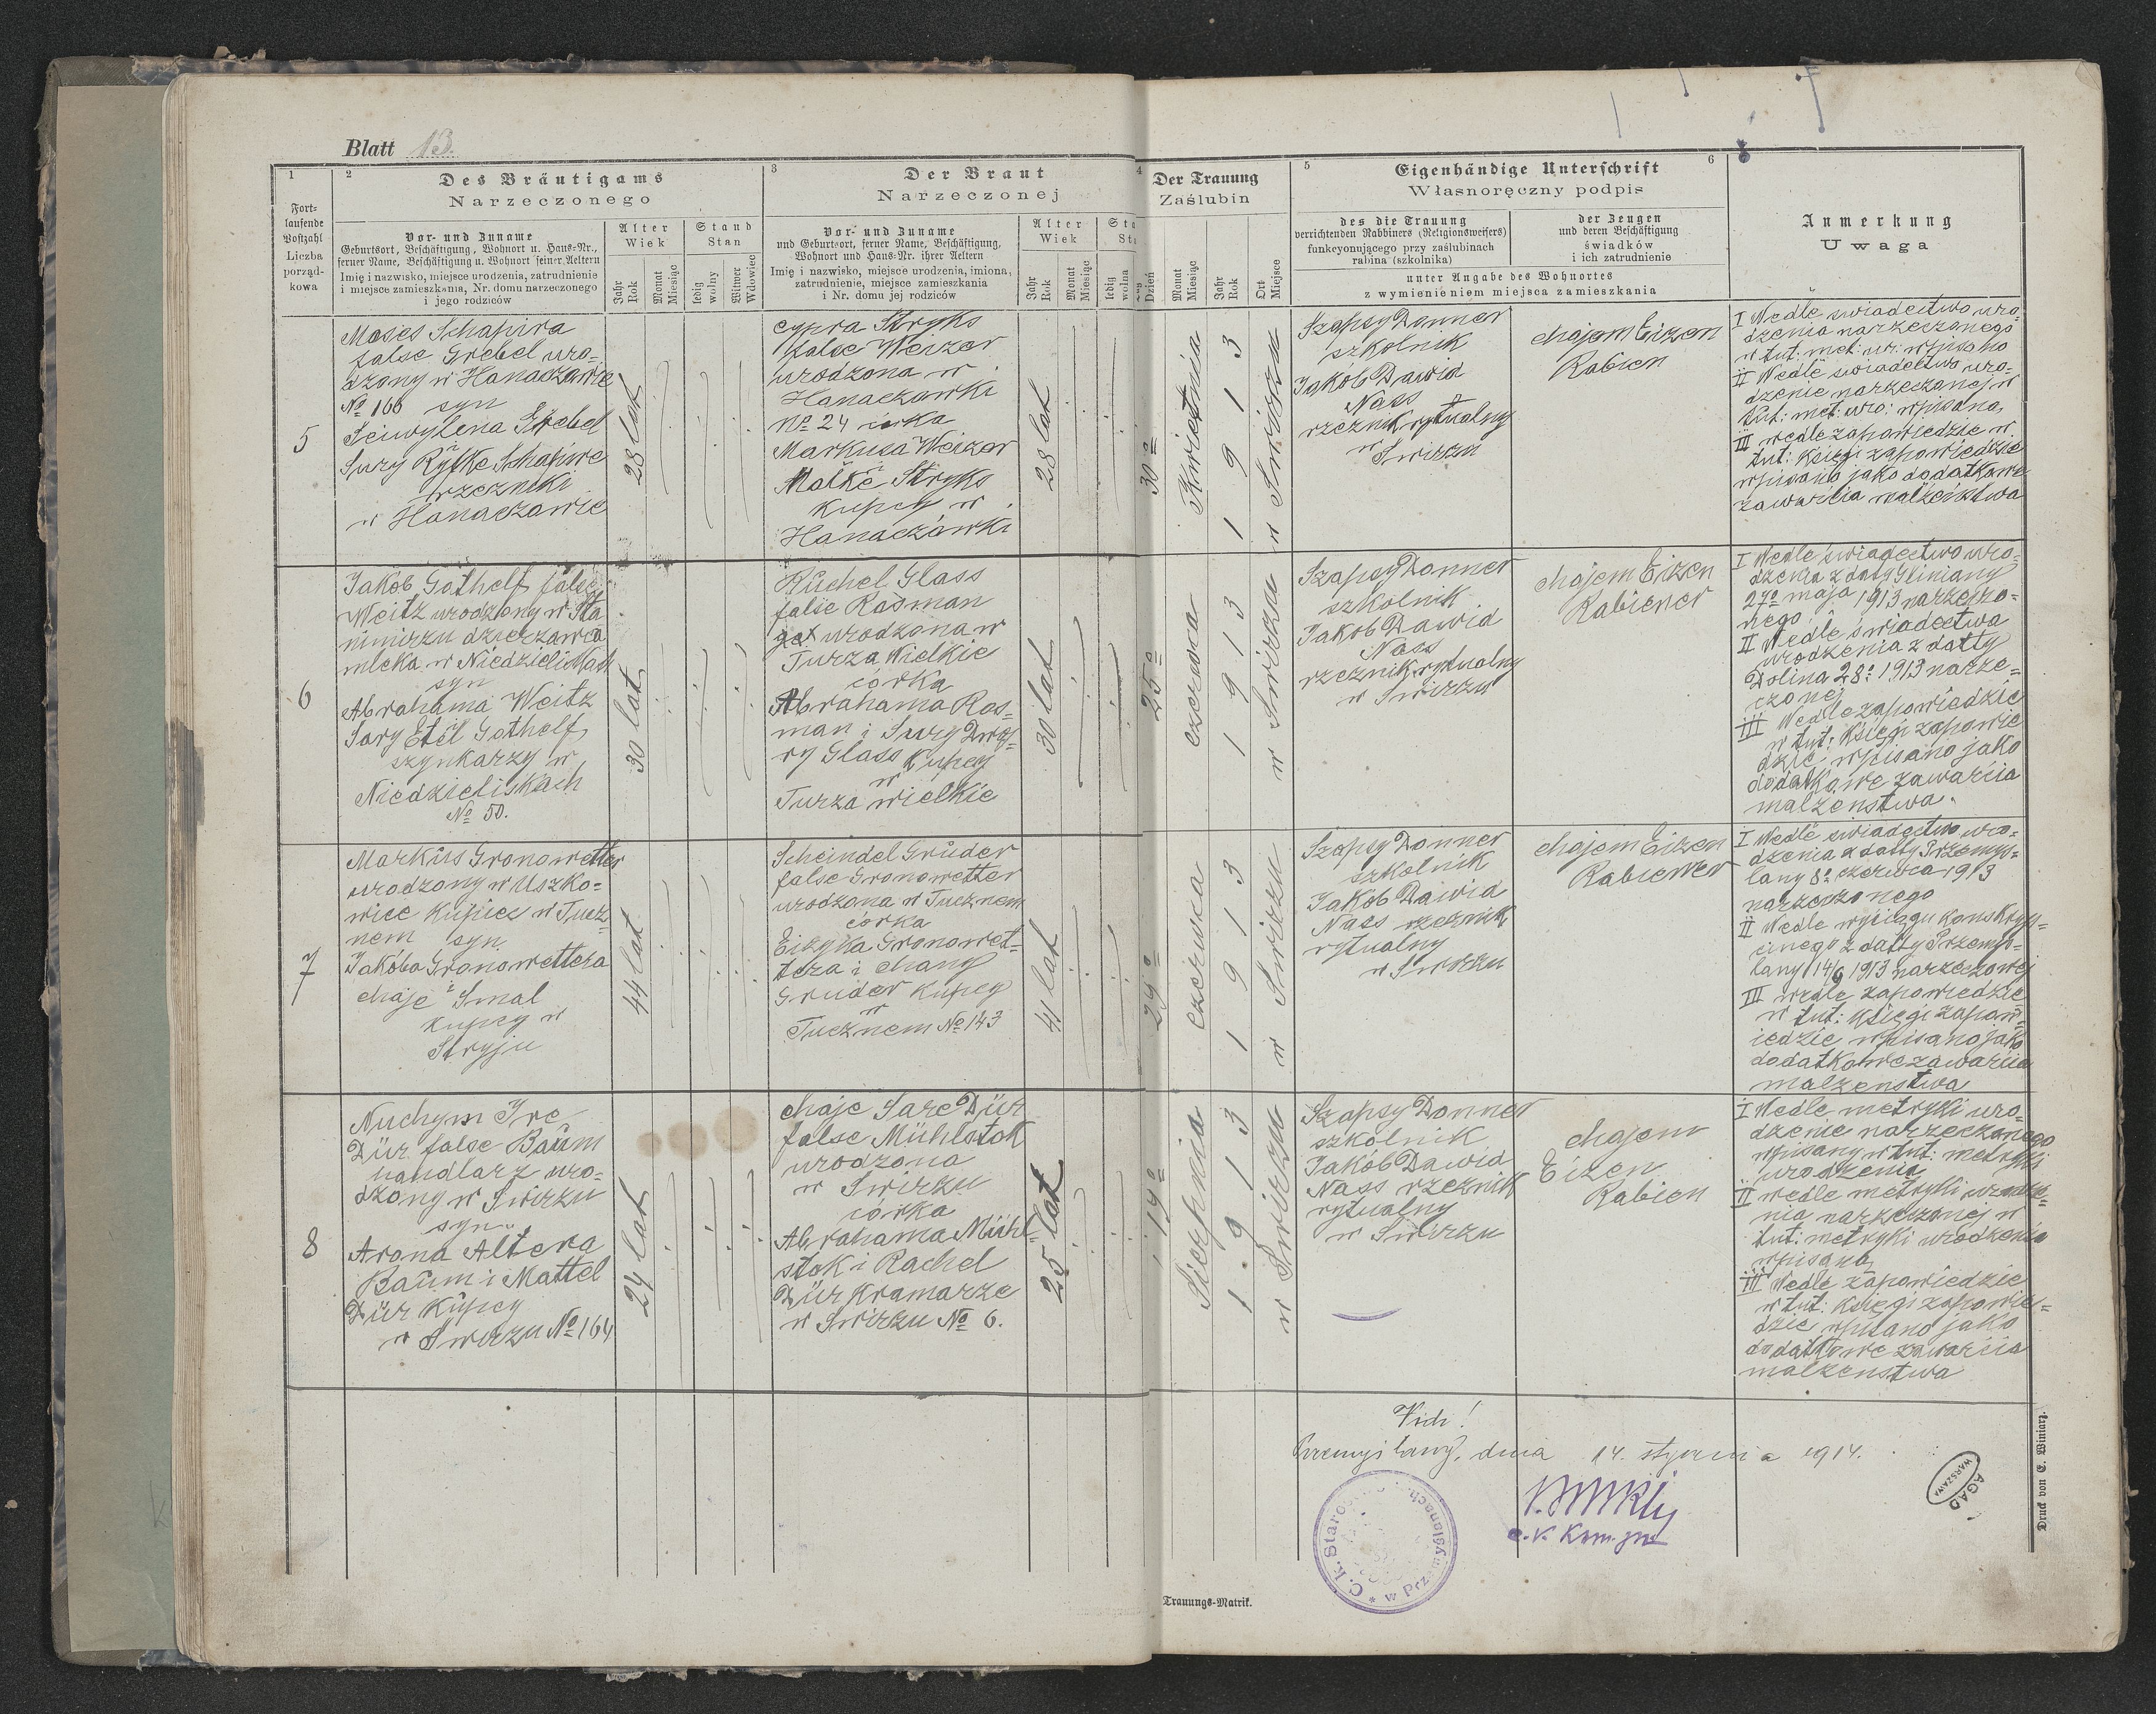 Blatt 13.
1
2
Des Bräutigams
Narzeczonego
3
Der Braut
Narzeczonej
4
Der Trauung
Zaślubin
5
Eigenhändige Unterschrift
Własnoręczny podpis
6
Anmerkung
Uwaga
Fort-
laufende
Postzahl
Liczba
porząd-
kowa
Vor- und Zuname
Geburtsort, Beschäftigung, Wohnort u. Haus-Nr.,
ferner Name, Beschäftigung u. Wohnort seiner Aeltern
Imię i nazwisko, miejsce urodzenia, zatrudnienie
i miejsce zamieszkania, Nr. domu narzeczonego
i jego rodziców
Alter
Wiek
Jahr
Rok
Monat
Miesiąc
Stand
Stan
ledig
wolny
Witwer
Wdowiec
Vor- und Zuname
und Geburtsort, ferner Name, Beschäftigung,
Wohnort und Haus-Nr. ihrer Aeltern
Imię i nazwisko, miejsce urodzenia, imiona,
zatrudnienie, miejsce zamieszkania
i Nr. domu jej rodziców
Alter
Wiek
Jahr
Rok
Monat
Miesiąc
ledig
wolna
Dzień
Monat
Miesiąc
Jahr
Rok
Ort
Miejsce
des die Trauung
verrichtenden Rabbiners (Religionsweisers)
funkcyonującego przy zaślubinach
rabina (szkolnika)
der Zeugen
und deren Beschäftigung
świadków
i ich zatrudnienie
unter Angabe des Wohnortes
z wymienieniem miejsca zamieszkania
5
Moses Schapira
false Grebel uro-
dzony w Hanaczowie
No 166 syn
Grebel
Sury Schapire
rzezniki
w Hanaczowie
28 lat
cypra Stryks
false Weizer
urodzona w
Hanaczowki
No 24 córka
Markusa Weizer
Malke Stryks
Kupcy w
Hanaczówki
28 lat
30
Kwietnia
1913
w Swirzu
Szapsy Donner
szkolnik
Jakób Dawid
Nass
rzeznik rytualny
w Swirzu
chajem Eizen
Rabien
I Wedle swiadectwo uro-
dzenia narzeczonego
w tut: met: ur: wpisano
II Wedle swiadectwo uro-
dzenie narzeczonej w
tut: met: uro: wpisana,
III wedle zapowiedzie w
tut: Księgi zapowiedzie
wpisano jako dodatkowe
zawarcia malżeństwa
6
Jakob Gothelf false
Weitz urodzony w Sta
nimirzu dzierzawca
mleka w Niedzieliskach
syn
Abrahama Weitz
Sary Etel Gothelf
szynkarzy w
Niedzieliskach
No 50.
30 lat
Ruchel Glass
false Rosman
urodzona w
Turza Wielkie
córka
Abrahama Ros-
man i Surg Dwo-
ry Glass Kupcy
w
Turza wielkie
30 lat
25
czerwca
1913
w Swirzu
Szapsy Donner
szkolnik
Jakob Dawid
Nass
rzeznik rytualny
w Swirzu
chajem Eizen
Rabiener
I Wedle swiadectwo uro-
dzenia z daty Gliniany
27o maja 1913 narzeczo-
nego
II Wedle swiadectwa
urodzenia z datty
Dolina 28: 1913 narze-
czonej
III Wedle zapowiedzie
w tut: Księgi zapowie
dzie wpisano jako
dodatkowe zawarcia
malzenstwa.
7
Markus Gronowetter
urodzony w Uszko-
wice Kupiec w Tucz
nem syn
Jakóba Gronowettera
chaje Smal
Kupcy w
Stryju
44 lat
Scheindel Gruder
false Gronowetter
urodzona w Tucznem
córka
Eizyka Gronowet-
tera i chany
Gruder Kupcy
w
Tucznem No 143
41 lat
24
czerwca
1913
w Swirzu
Szapsy Donner
szkolnik
Jakób Dawid
Nass rzeznik
rytualny
w Swirzu
chajem Eizen
Rabiener
I Wedle swiadectwo uro-
dzenia z datty Przemys-
lany 8o czerwca 1913
narzeczonego
II Wedle wyciągu konskryp-
cinego z datty Przemys-
lany 14/6 1913 narzeczonej
III wedle zapowiedzie
w tut: Księgi zapow-
iedzie wpisano jako
dodatkowe zawarcia
malzenstwa
8
Nuchym Ire
Dür false Baum
handlarz uro-
dzony w Swirzu
syn
Arona Altera
Baum i Mattel
Dür Kupcy
w Swirzu No 164
24 lat
chaje Sare Dür
false Mühlstok
urodzona
w Swirzu
córka
Abrahama Mühl-
stok i Rachel
Dür Kramarze
w Swirzu No 6.
25 lat
14
Sierpnia
1913
w Swirzu
Szapsy Donner
szkolnik
Jakób Dawid
Nass rzeznik
rytualny
w Swirzu
chajem
Eizen
Rabien
I Wedle metryki uro-
dzenie narzeczonego
wpisany w tut: metryki
urodzenia
II wedle metryki urodze-
nia narzeczonej w
tut: metryki urodzenia
wpisana
III Wedle zapowiedzie
w tut: Księgi zapowie-
dzie wpisano jako
dodatkowe zawarcia
malzenstwa
Vidi!
Przemyślany, dnia 14. stycznia 1914.
C. k. Staro
w Przemyślanach
AGAD
WARSZAWA
Trauungs-Matrik.
Druck von E. Winiarz.